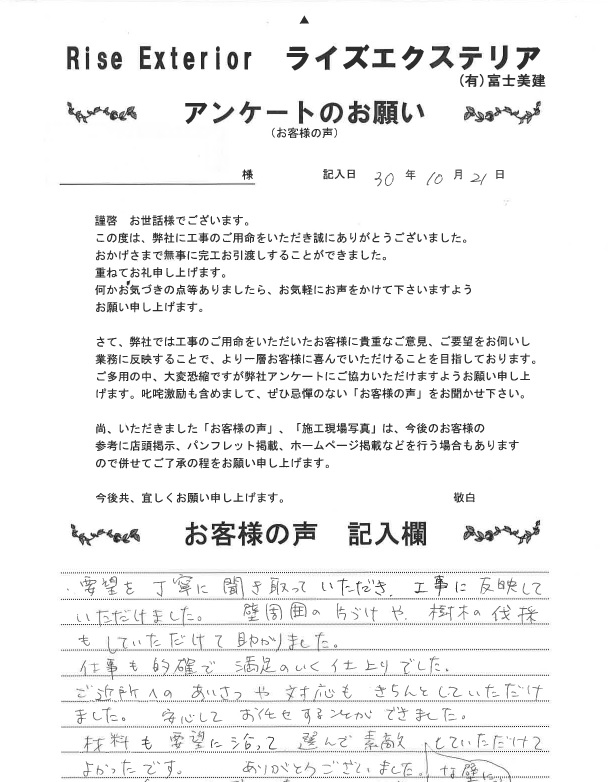 Rise Exterior ライズエクステリア
(有)富士美建
アンケートのお願い
(お客様の声)
様 記入日 30 年 10 月 21 日
謹啓 お世話様でございます。
この度は、弊社に工事のご用命をいただき誠にありがとうございました。
おかげさまで無事に完工お引渡しすることができました。
重ねてお礼申し上げます。
何かお気づきの点等ありましたら、お気軽にお声をかけて下さいますよう
お願い申し上げます。
さて、弊社では工事のご用命をいただいたお客様に貴重なご意見、ご要望をお伺いし
業務に反映することで、より一層お客様に喜んでいただけることを目指しております。
ご多用の中、大変恐縮ですが弊社アンケートにご協力いただけますようお願い申し上
げます。叱咤激励も含めまして、ぜひ忌憚のない「お客様の声」をお聞かせ下さい。
尚、いただきました「お客様の声」、「施工現場写真」は、今後のお客様の
参考に店頭掲示、パンフレット掲載、ホームページ掲載などを行う場合もあります
ので併せてご了承の程をお願い申し上げます。
今後共、宜しくお願い申し上げます。 敬白
お客様の声 記入欄
・要望を丁寧に聞き取っていただき、工事に反映して
いただけました。 壁周囲の片づけや、樹木の伐採
もしていただけて助かりました。
仕事も的確で満足のいく仕上りでした。
ご近所へのあいさつや対応もきちんとしていただけ
ました。 安心してお任せすることができました。
材料も要望に沿って選んで素敵していただけて
よかったです。 ありがとうございました。 な壁に